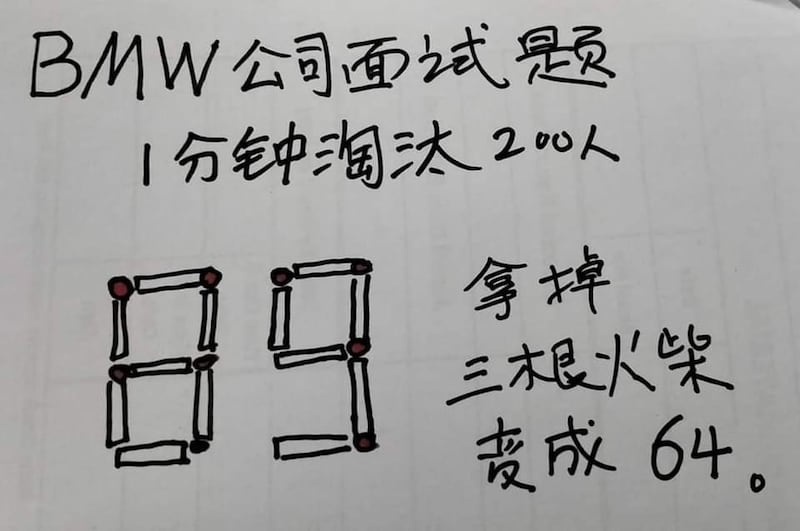 BMW公司面试题
1分钟淘汰200人
89
拿掉
三根火柴
变成64。